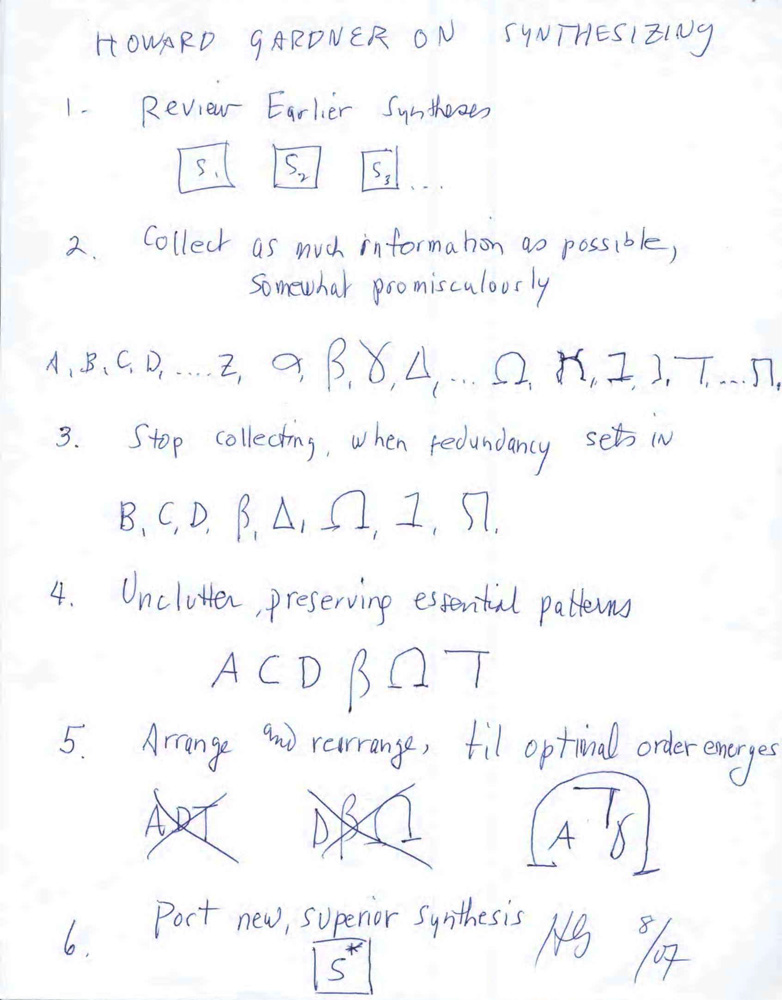 HOWARD GARDNER ON SYNTHESIZING
1- Review Earlier Syntheses
S1 S2 S3 ...
2. Collect as much information as possible,
somewhat promisculously
A, B, C, D, .... Z, α, β, γ, Δ, ... Ω, א, ב, ג, ד, ... ת.
3. Stop collecting, when redundancy sets in
B, C, D, β, Δ, Ω, ב, ת.
4. Unclutter, preserving essential patterns
A C D β Ω ד
5. Arrange and rearrange, til optimal order emerges
A D T D β Ω A ד γ
6. Port new, superior synthesis HG 8/07
S*